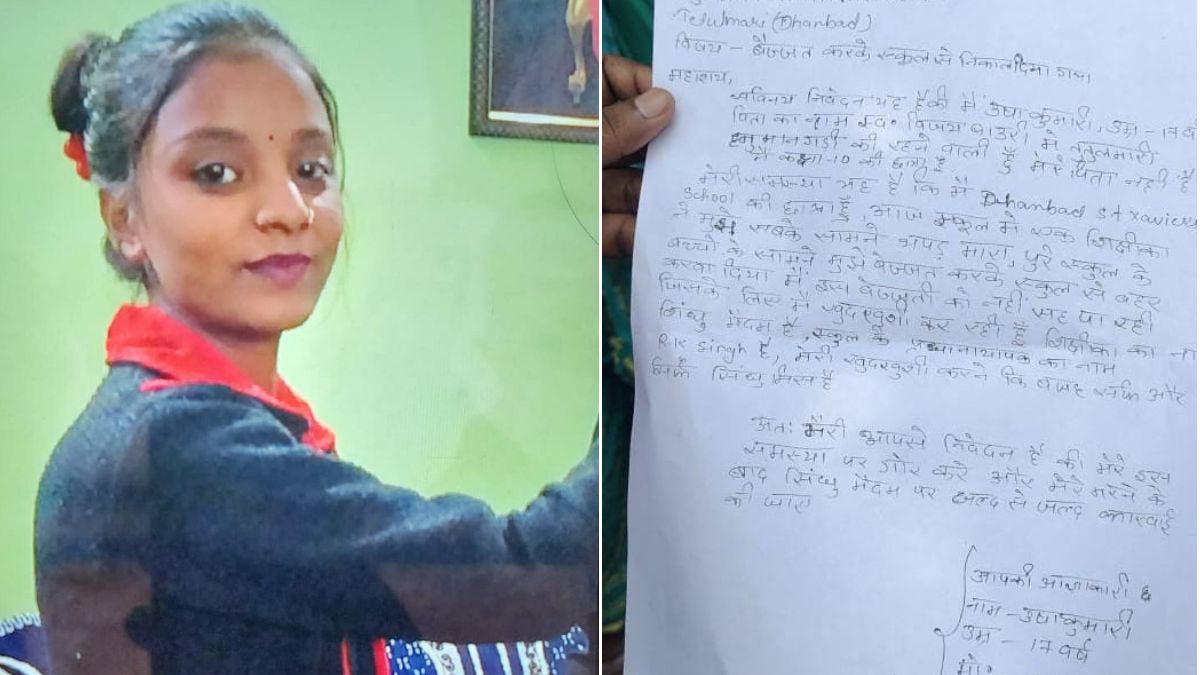 Tetulmari (Dhanbad)
विषय - बेज्जत करके स्कूल से निकाल दिया गया
महाशय,
सविनय निवेदन यह है की मैं उषा कुमारी, उम्र - 17 व
पिता का नाम स्व० विजय बाउरी, में तुतुलमारी
की रहने वाली हूँ मेरे पिता नहीं है
मैं कक्षा-10 की छात्रा हूँ
मेरी समस्या यह है कि मैं Dhanbad st xaviers
school की छात्रा हूँ, आज स्कूल मे एक शिक्षीका
ने मुझे सबके सामने थपड़ मारा, पुरे स्कूल के
बच्चों के सामने मुझे बेज्जत करके स्कूल से बहर
करवा दिया मैं इस बेज्जती को नहीं सह पा रही
जिसके लिए मैं खुदखुशी कर रही हूँ शिक्षीका का ना
सिंधु मेदम है, स्कूल के का नाम
R.k singh है, मेरी खुदखुशी करने कि वजह सर्फ और
सिर्फ सिंधु मिस है
अतः मेरी आपसे निवेदन है की मेरे इस
समस्या पर गोर करे और मेरे मरने के
बाद सिंधु मेदम पर जल्द से जल्द कारवाई
की जाए
आपकी आज्ञाकारी
नाम - उषा कुमारी
उम्र - 17 वर्ष
मो०